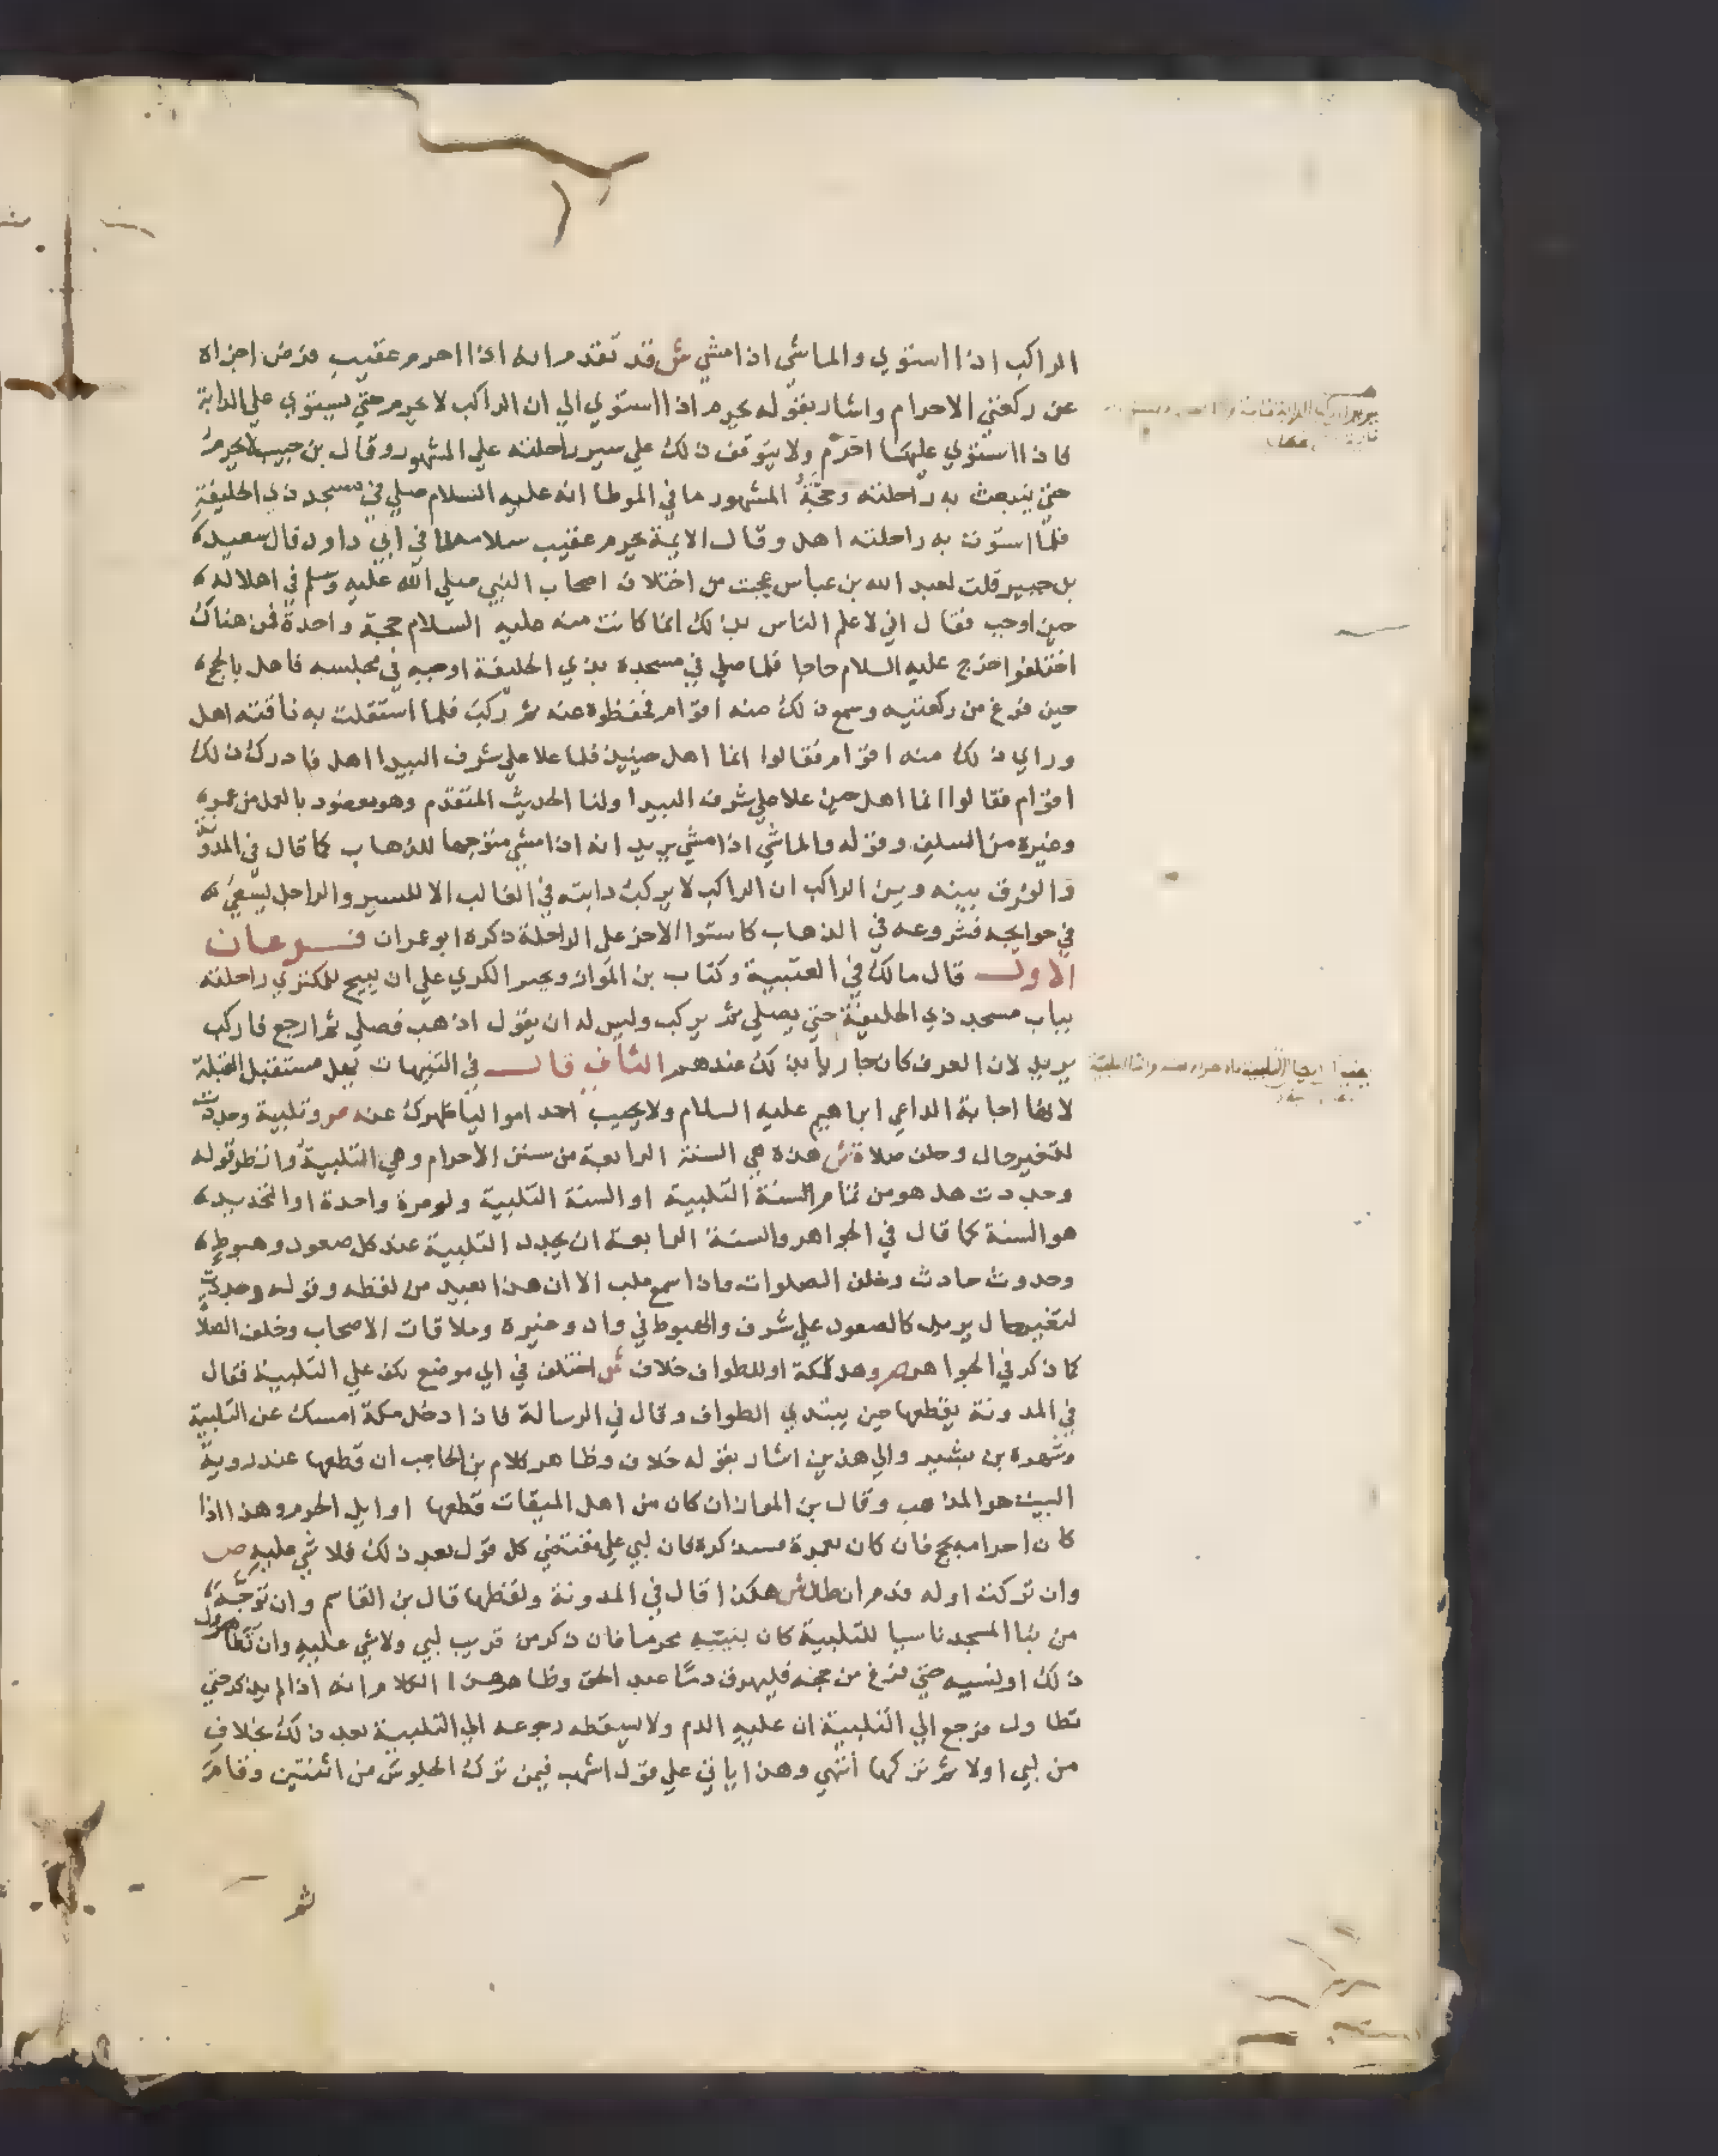 الراكب اذا استوي والماشي اذا مشي ش قد تقدم انه اذا احرم عقيب فرض اجزاه
عن ركعتي الاحرام واشار بقوله يحرم اذا استوي الي ان الراكب لا يحرم حتي يستوي علي الدابة
فاذا استوي عليها احرم ولا يتوقف ذلك علي سير راحلته علي المشهور وقال بن حبيب لا يحرم
حتي تنبعث به راحلته وحجة المشهور ما في الموطا انه عليه السلام صلي في مسجد ذي الحليفة
فلما استوت به راحلته اهل وقال الايمة يحرم عقيب سلامه لما في ابي داود قال سعيد
بن جبير قلت لعبد الله بن عباس عجبت من اختلاف اصحاب النبي صلي الله عليه وسلم في اهلاله
حين اوجب فقال اني لاعلم الناس بذلك انما كانت منه عليه السلام حجة واحدة فمن هناك
اختلفوا خرج عليه السلام حاجا فلما صلي في مسجده بذي الحليفة اوجبه في مجلسه فاهل بالحج
حين فرغ من ركعتيه وسمع ذلك منه اقوام فحفظوه عنه ثم ركب فلما استقلت به ناقته اهل
وراي ذلك منه اقوام فقالوا انما اهل حينيذ فلما علا علي شرف البيدا اهل فادرك ذلك
اقوام فقالوا انما اهل حين علا علي شرف البيدا ولنا الحديث المتقدم وهو معضود بالعمل من عمر
وغيره من السلف وقوله والماشي اذا مشي يريد انه اذا مشي متوجها للذهاب كما قال في المدونة
والفرق بينه وبين الراكب ان الراكب لا يركب دابته في الغالب الا للسير والراجل يسعي
في حوايجه فشروعه في الذهاب كاستوا الاخر علي الراحلة ذكره ابو عمران فرعان
الاول قال مالك في العتبية وكتاب بن المواز ويجبر الكري علي ان ينيخ للمكتري راحلته
بباب مسجد ذي الحليفة حتي يصلي ثم يركب وليس له ان يقول اذهب فصلي ثم ارجع فاركب
يريد لان العرف كان جاريا بذلك عندهم الثاني قال في التنبيهات يهل مستقبل القبلة
لانها اجابة الداعي ابراهيم عليه السلام ولا يجيب احد اموالياظهرك عنه ص وتلبية وجددت
لتغير حال وخلف صلاة ش هذه هي السنة الرابعة من سنن الاحرام وهي التلبية وانظر قوله
وجددت هل هو من تمام السنة التلبية او السنة التلبية ولو مرة واحدة او التجديد
هو السنة كما قال في الجواهر والسنة الرابعة ان يجدد التلبية عند كل صعود وهبوط
وحدوث حادث وخلف الصلوات واذا سمع ملب الا ان هذا بعيد من لفظه وقوله وجددت
لتغير حال يريد كالصعود علي شرف والهبوط في واد وغيره وملاقات الاصحاب وخلف الصلاة
كما ذكر في الجواهر ص وهل لمكة او للطواف خلاف ش اختلف في اي موضع يكف علي التلبية فقال
في المدونة يقطعها حين يبتدي الطواف وقال في الرسالة فاذا دخل مكة امسك عن التلبية
وشهره بن بشير والي هذين اشار بقوله خلاف وظاهر كلام بن الحاجب ان قطعها عند روية
البيت هو المذهب وقال بن المواز ان كان من اهل الميقات قطعها اوايل الحرم وهذا اذا
كان احرامه بحج فان كان بعمرة فسيذكره فان لبي علي مقتضي كل قول بعد ذلك فلا شي عليه ص
وان تركت اوله فدم ان طال ش هكذا قال في المدونة ولفظها قال بن القاسم وان توجه
من فنا المسجد ناسيا للتلبية كان بنيته محرما فان ذكر من قريب لبي ولا شي عليه وان تطاول
ذلك او نسيه حتي فرغ من حجه فليهرق دما عبد الحق وظاهر هذا الكلام انه اذا لم يذكر حتي
تطاول فرجع الي التلبية ان عليه الدم ولا يسقطه رجوعه الي التلبية بعد ذلك بخلاف
من لبي اولا ثم تركها انتهي وهذا ياتي علي قول اشهب فيمن ترك الجلوس من اثنتين وقام
ثم